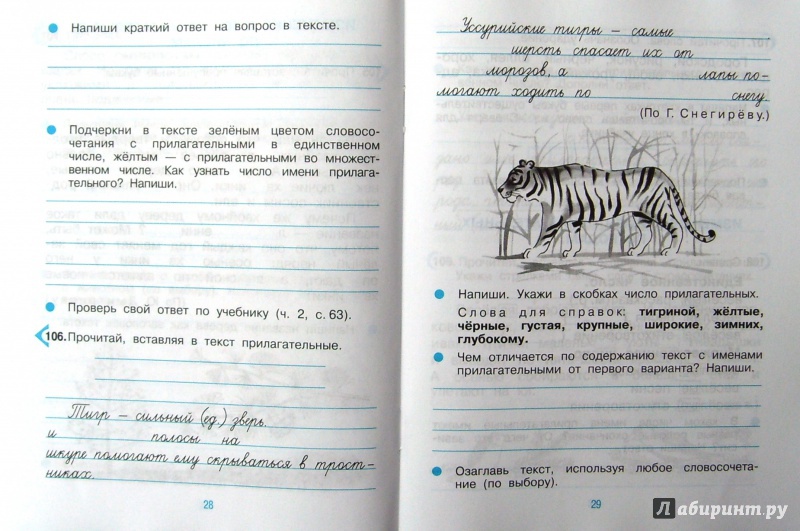 Напиши краткий ответ на вопрос в тексте.
Подчеркни в тексте зелёным цветом словосо-
четания с прилагательными в единственном
числе, жёлтым — с прилагательными во множест-
венном числе. Как узнать число имени прилага-
тельного? Напиши.
Проверь свой ответ по учебнику (ч. 2, с. 63).
106. Прочитай, вставляя в текст прилагательные.
Тигр — сильный (ед.) зверь.
и полосы на
шкуре помогают ему скрываться в трост-
никах.
28
Уссурийские тигры — самые
шерсть спасает их от
морозов, а лапы по-
могают ходить по снегу.
(По Г. Снегирёву.)
Напиши. Укажи в скобках число прилагательных.
Слова для справок: тигриной, жёлтые,
чёрные, густая, крупные, широкие, зимних,
глубокому.
Чем отличается по содержанию текст с именами
прилагательными от первого варианта? Напиши.
Озаглавь текст, используя любое словосочета-
ние (по выбору).
29
Лабиринт.ру